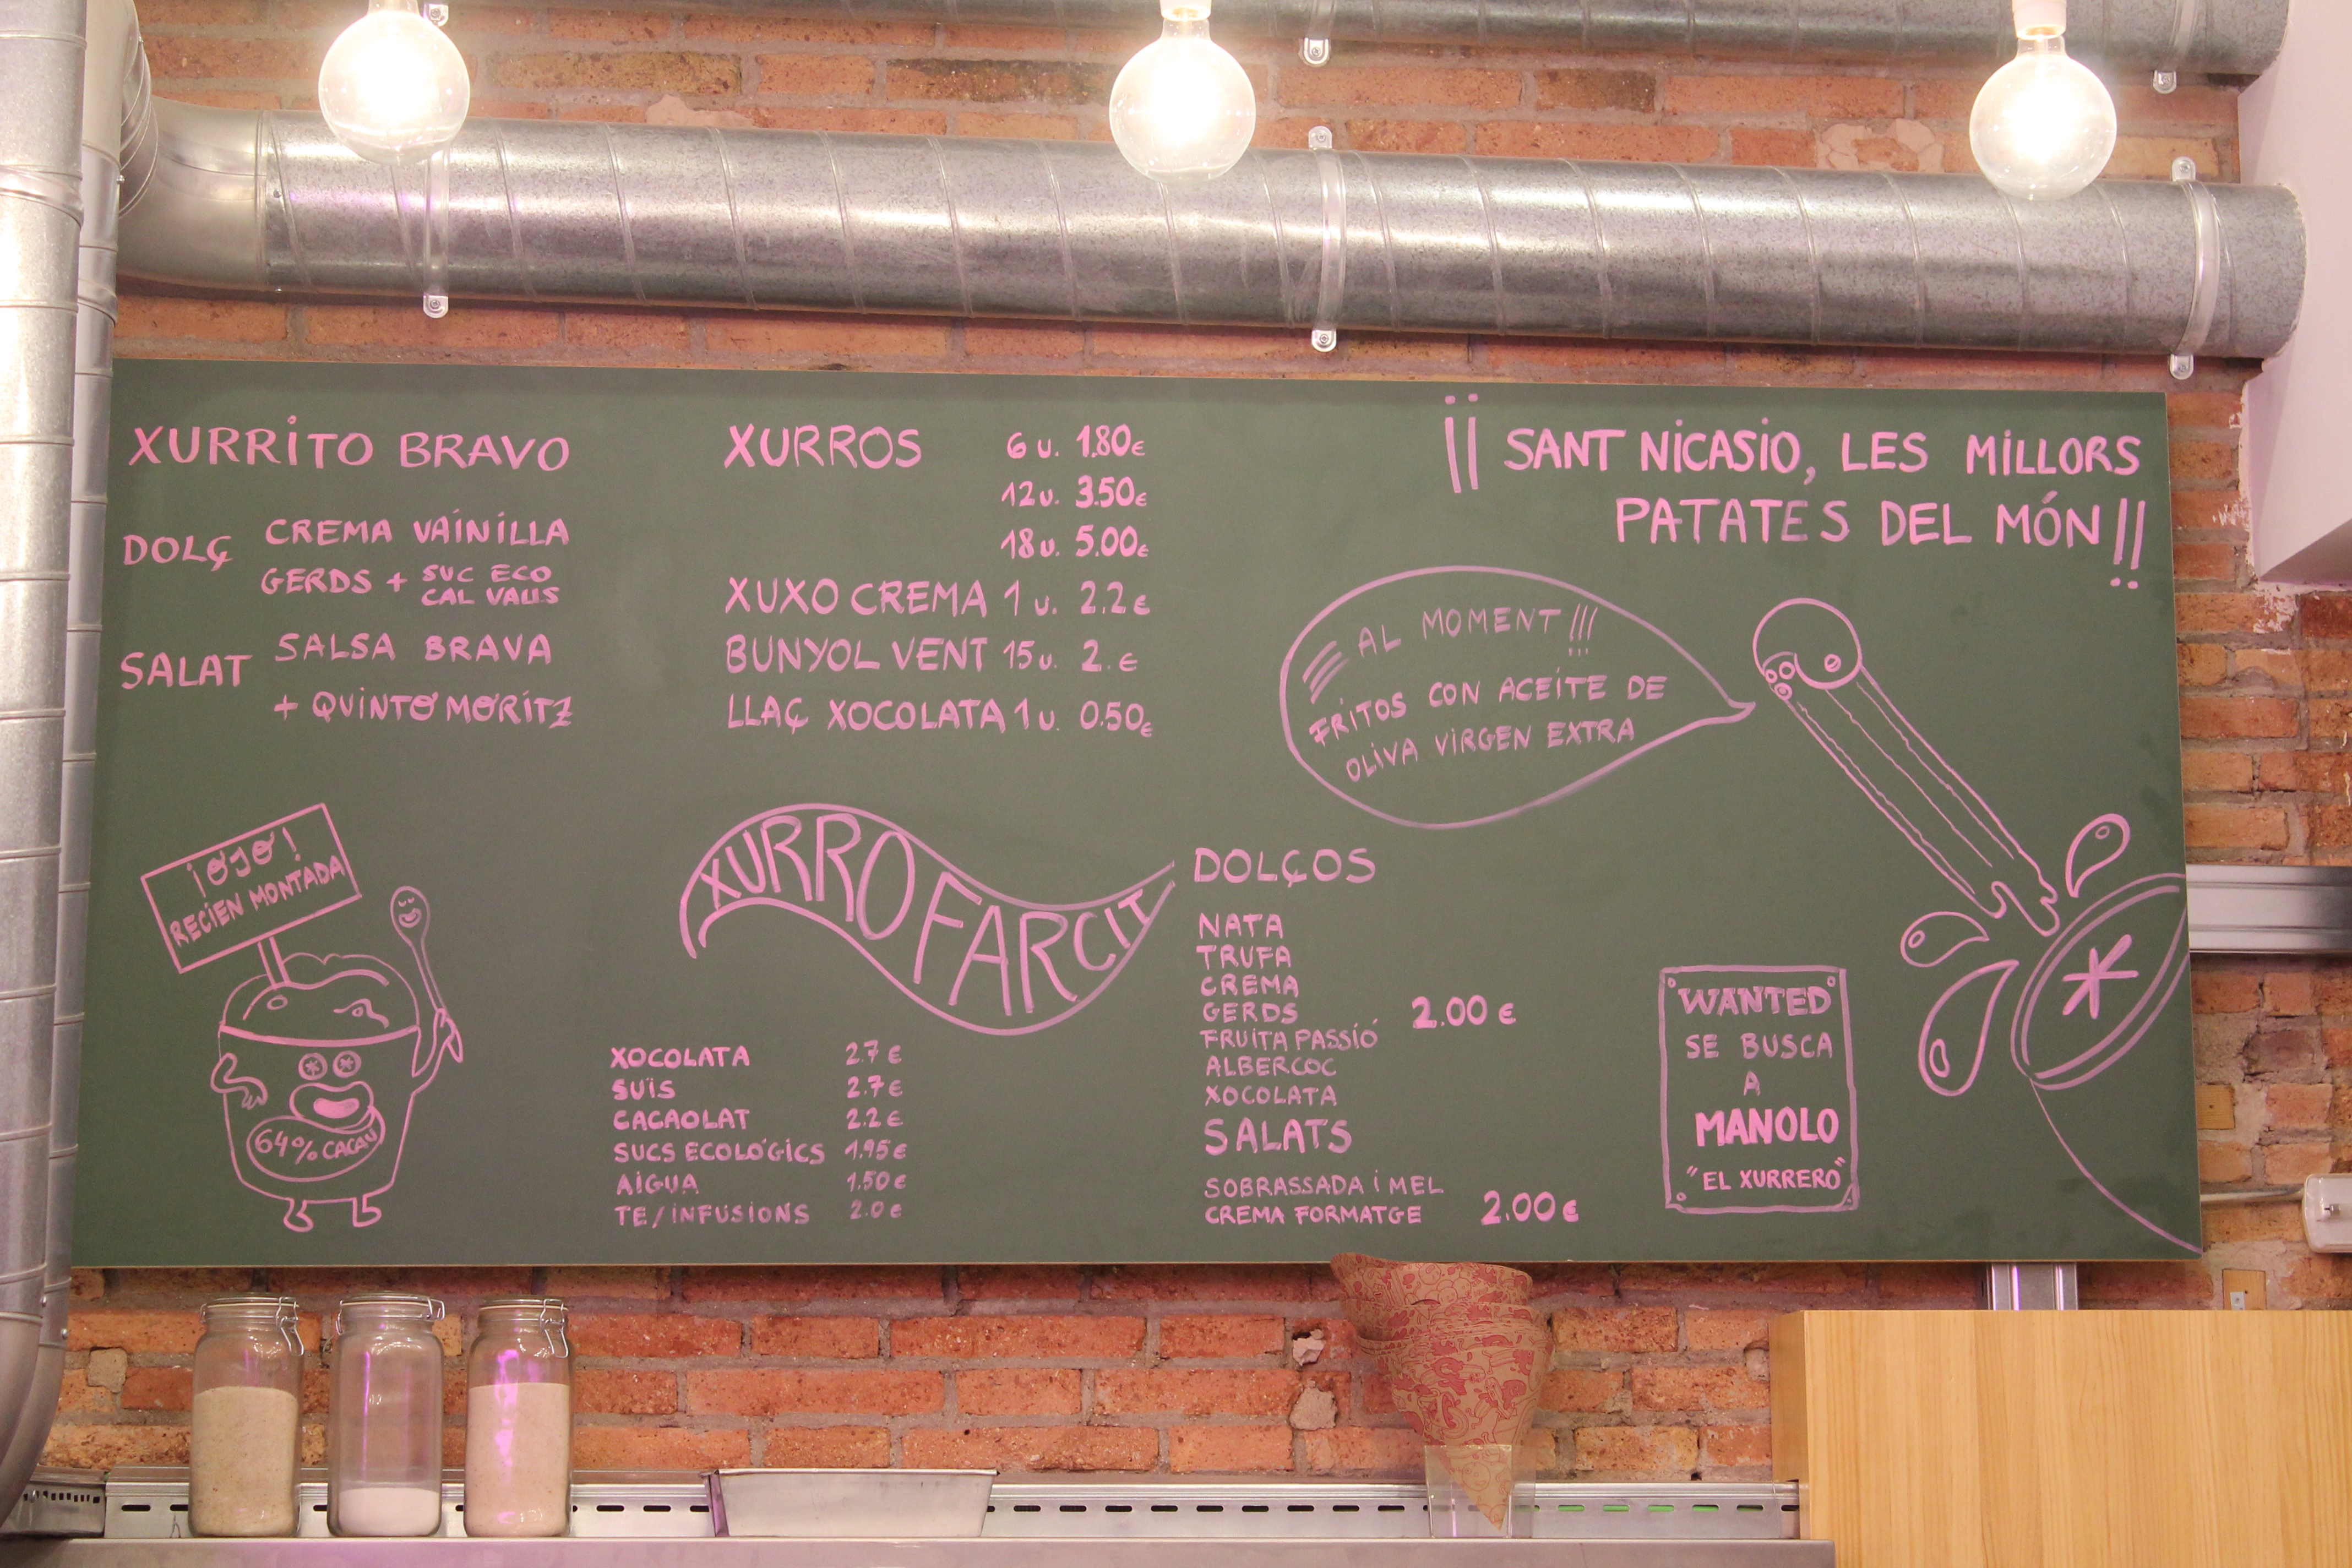 XURRITO BRAVO
DOLÇ CREMA VAINILLA
GERDS + SUC ECO
CAL VALLS
SALAT SALSA BRAVA
+ QUINTO MORITZ
XURROS 6 u. 1.80€
12 u. 3.50€
18 u. 5.00€
XUXO CREMA 1 u. 2.2€
BUNYOL VENT 15 u. 2. €
LLAÇ XOCOLATA 1 u. 0.50€
¡¡ SANT NICASIO, LES MILLORS
PATATES DEL MÓN!!
AL MOMENT!!!
FRITOS CON ACEITE DE
OLIVA VIRGEN EXTRA
¡OJO!
RECIEN MONTADA
64% CACAU
XURRO FARCIT
XOCOLATA 2.7 €
SUÏS 2.7 €
CACAOLAT 2.2 €
SUCS ECOLÓGICS 1.95€
AIGUA 1.50€
TE/INFUSIONS 2.0€
DOLÇOS
NATA
TRUFA
CREMA
GERDS 2.00 €
FRUITA PASSIÓ
ALBERCOC
XOCOLATA
SALATS
SOBRASSADA I MEL
CREMA FORMATGE 2.00 €
WANTED
SE BUSCA
A
MANOLO
"EL XURRERO"